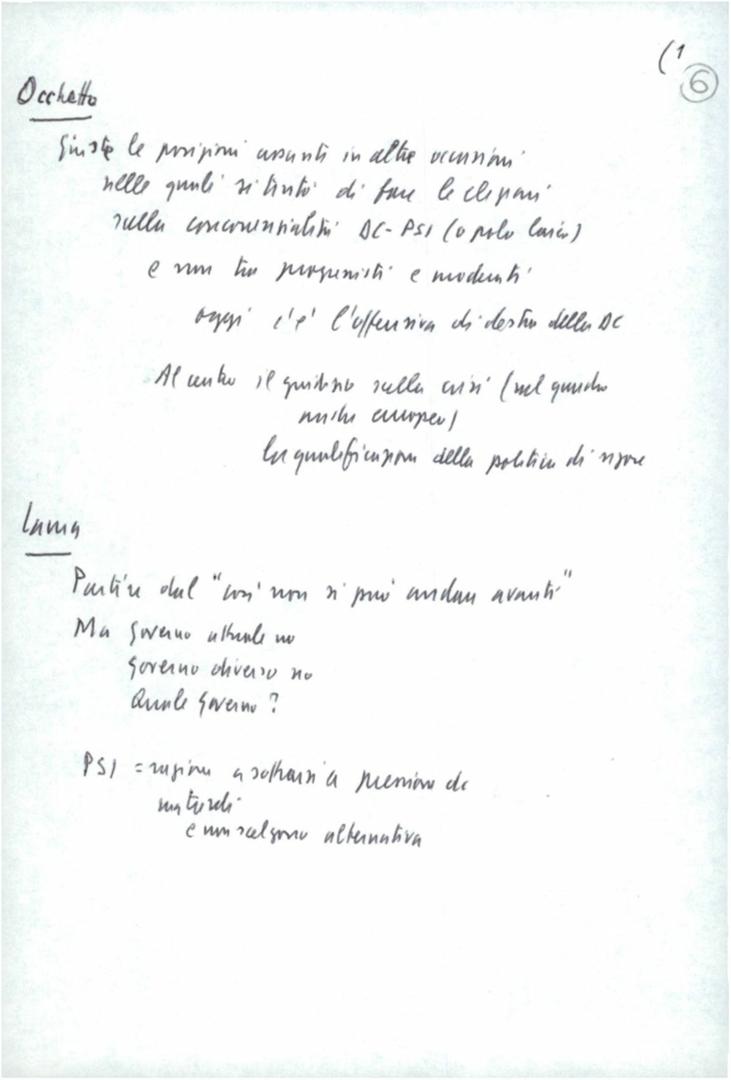 (1
6
Occhetto
Giuste le posizioni assunti in altre occasioni
nelle quali si tentò di fare le elezioni
sulla concorrenzialità DC-PSI (o polo laico)
e non tra progressisti e moderati
oggi c'è l'offensiva di destra della DC
Al centro il giudizio sulla crisi (nel quadro
anche europeo)
la qualificazione della politica di rigore
Lama
Partire dal "così non si può andare avanti"
Ma governo attuale no
governo diverso no
Quale governo?
PSI = a sottrarsi a pressione dc
naturali
e non scelgono alternativa